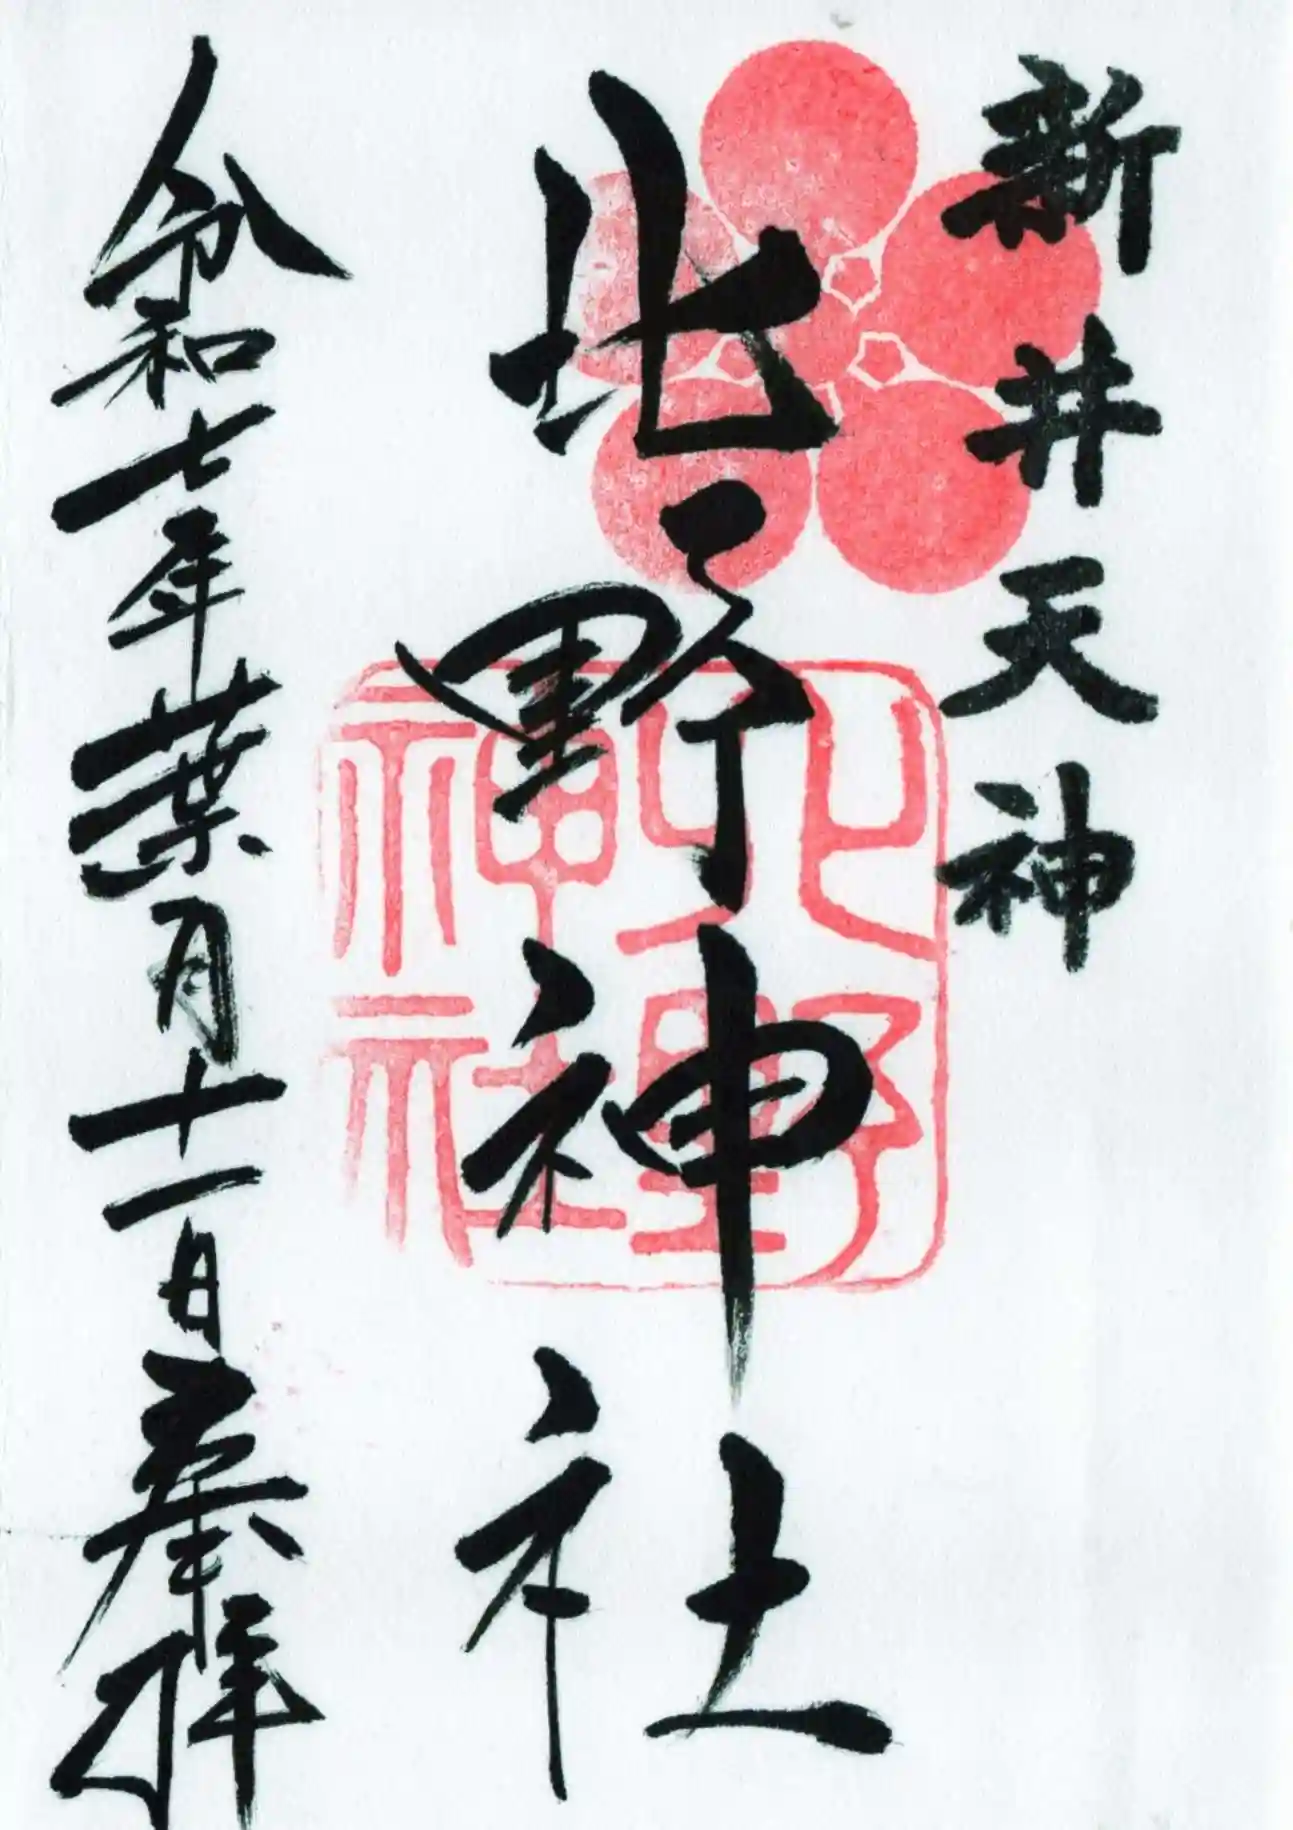 新井天神
北野神社
北野
神社
令和七年葉月十一日奉拝